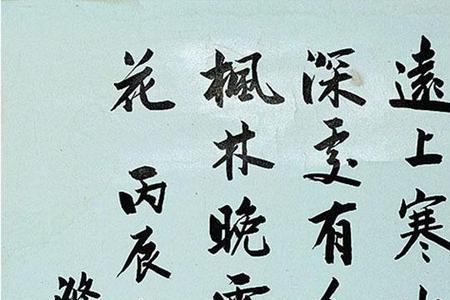 遠上寒
深處有
楓林晚
花 丙辰